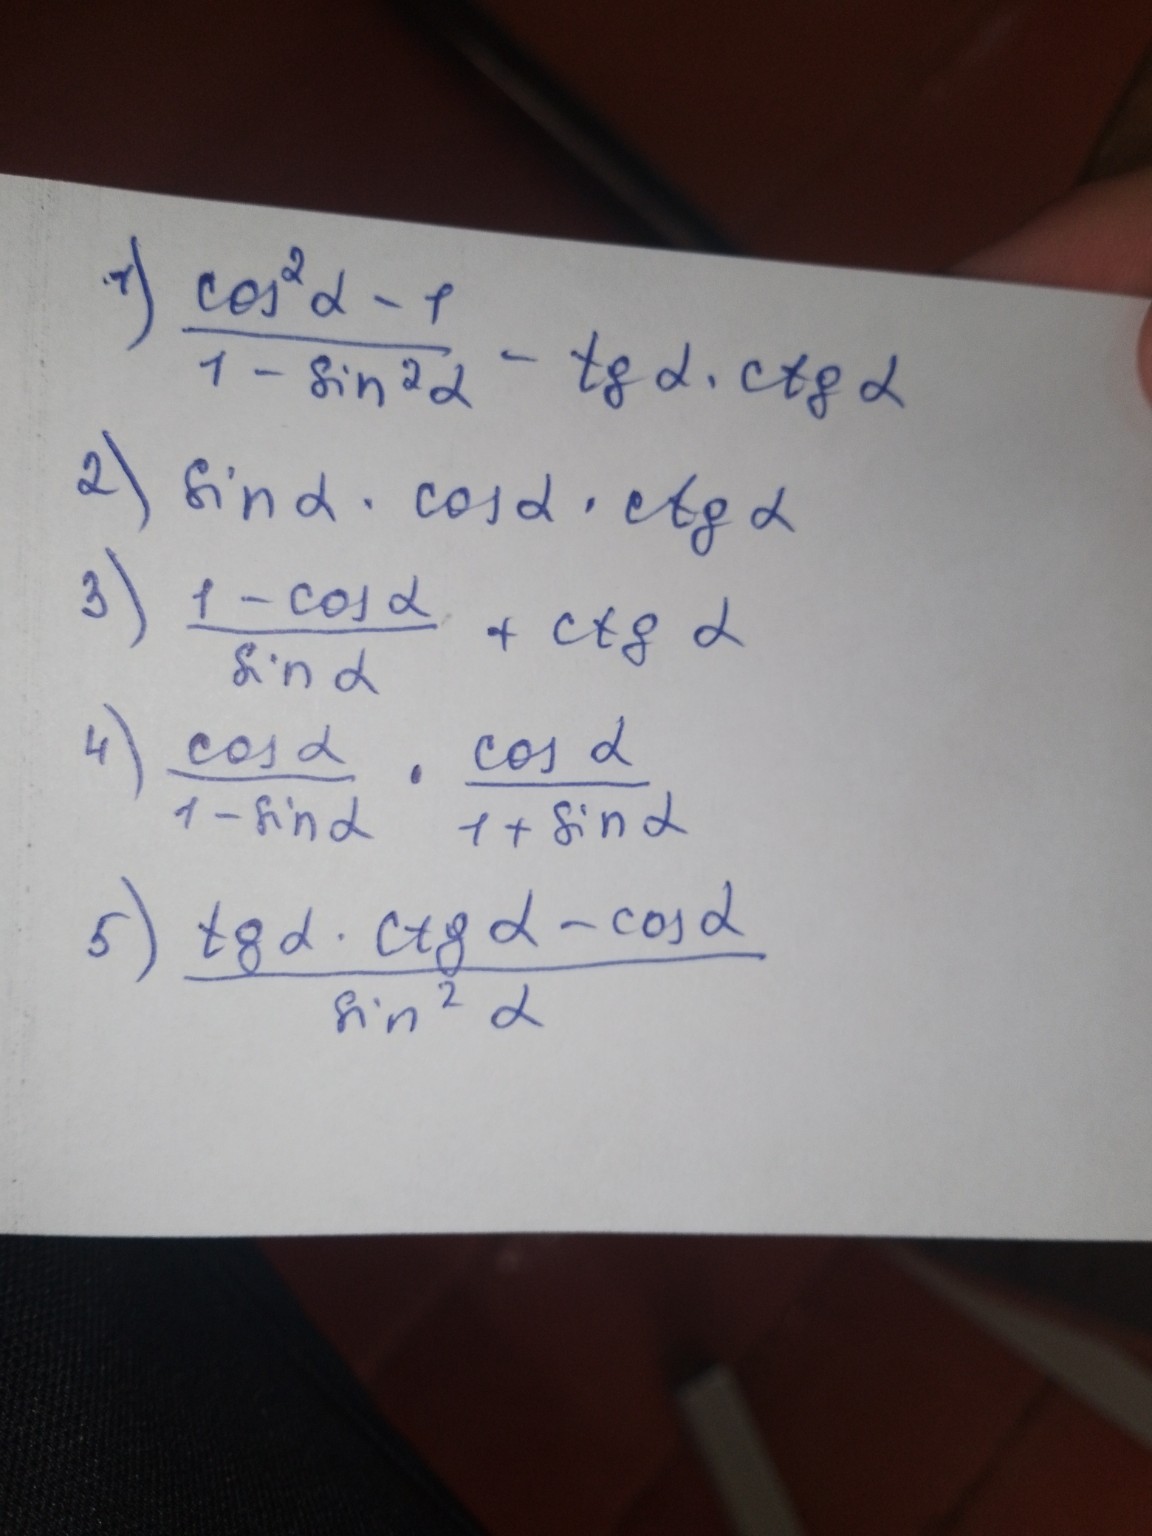 1) cos²α - 1 / 1 - sin²α - tg α · ctg α
2) sin α · cos α · ctg α
3) 1 - cos α / sin α + ctg α
4) cos α / 1 - sin α · cos α / 1 + sin α
5) tg α · ctg α - cos α / sin² α